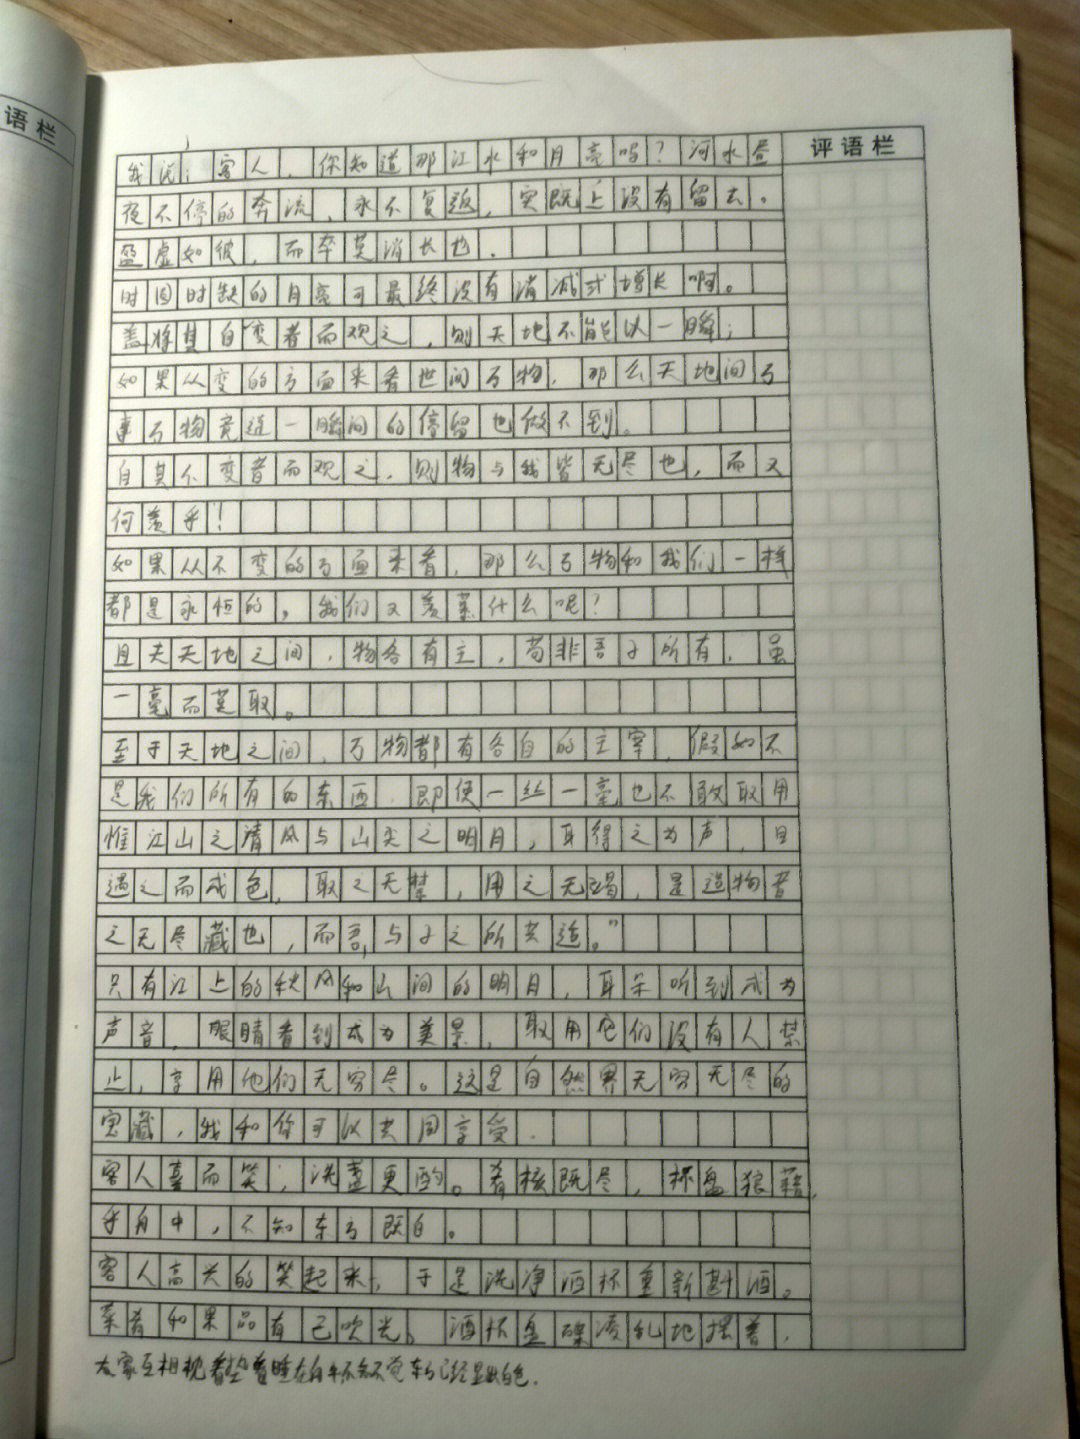 语栏
评语栏
我说：客人，你知道那江水和月亮吗？河水昼
夜不停的奔流，永不复返，实既上没有留去。
盈虚如彼，而卒莫消长也．
时圆时缺的月亮可最终没有消减或增长啊。
盖将其自变者而观之，则天地不能以一瞬；
如果从变的方面来看世间万物，那么天地间万
事万物竟连一瞬间的停留也做不到。
自其不变者而观之，则物与我皆无尽也，而又
何羡乎！
如果从不变的方面来看，那么万物和我们一样
都是永恒的，我们又羡慕什么呢？
且夫天地之间，物各有主，苟非吾子所有，虽
一毫而莫取。
至于天地之间，万物都有各自的主宰，假如不
是我们所有的东西，即使一丝一毫也不敢取用
惟江山之清风与山关之明月，耳得之为声，目
遇之而成色，取之无禁，用之无竭，是造物者
之无尽藏也，而吾与子之所共适。”
只有江上的秋风和山间的明月，耳朵听到成为
声音，眼睛看到成为美景，取用它们没有人禁
止，享用他们无穷尽。这是自然界无穷无尽的
宝藏，我和你可以共同享受．
客人喜而笑，洗盏更酌。肴核既尽，杯盘狼藉，
乎舟中，不知东方既白。
客人高兴的笑起来，于是洗净酒杯重新斟酒。
菜肴和果品有已吹光，酒杯盘碟凌乱地摆着，
大家互相枕着垫着睡在舟中不知不觉东方已经显出白色．